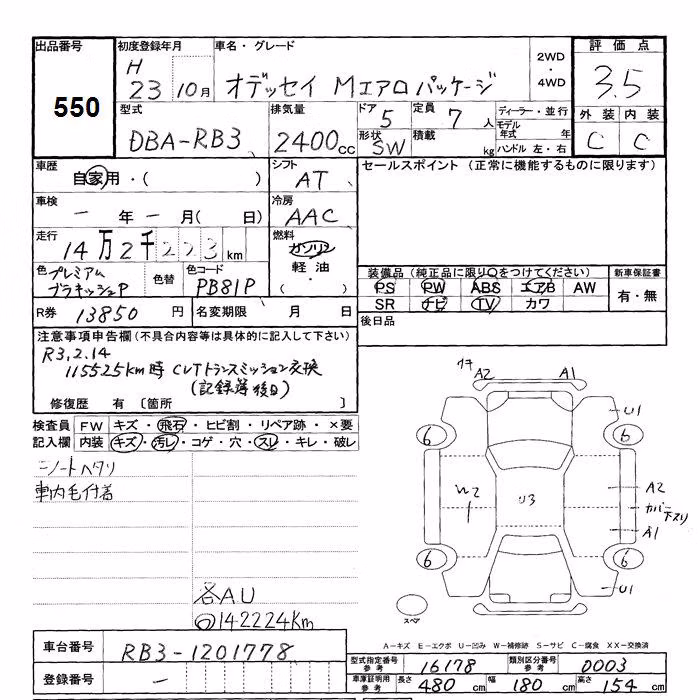 出品番号
550
初度登録年月
H 23 10月
車名・グレード
オデッセイ Mエアロパッケージ
2WD・4WD
評価点
3.5
型式
DBA-RB3
排気量
2400cc
ドア 5
形状 SW
定員 7人
積載 kg
ディーラー・並行
モデル年式 年
ハンドル 左・右
外装 内装
C C
車歴
自家用・( )
シフト
AT
セールスポイント(正常に機能するものに限ります)
車検
ー年ー月( 日)
冷房
AAC
走行
14万2千223km
燃料
ガソリン
軽油・
( )
色 プレミアム
ブラキッシュP
色替
色コード
PB81P
装備品(純正品に限り○をつけてください)
PS PW ABS エアB AW
SR ナビ TV カワ
新車保証書
有・無
R券 13850円
名変期限 月 日
後日品
注意事項申告欄(不具合内容等は具体的に記入して下さい)
R3,2.14
115525km時 CVTトランスミッション交換
(記録簿後日)
修復歴 有 [箇所 ]
検査員記入欄
FW キズ・飛石・ヒビ割・リペア跡・×要
内装 キズ・汚レ・コゲ・穴・スレ・キレ・破レ
シートヘタリ
車内毛付着
各AU
142224km
ワキ A2 A1
U1
6 6
W2 U3
A2
カバー下スリ
A1
6 6
U1
スペア
A-キズ E-エクボ U-凹み W-補修跡 S-サビ C-腐食 XX-交換済
車台番号
RB3-1201778
登録番号
ー
型式指定番号参考 16178
類別区分番号参考 0003
車庫証明用参考 長さ 480cm 幅 180cm 高さ 154cm